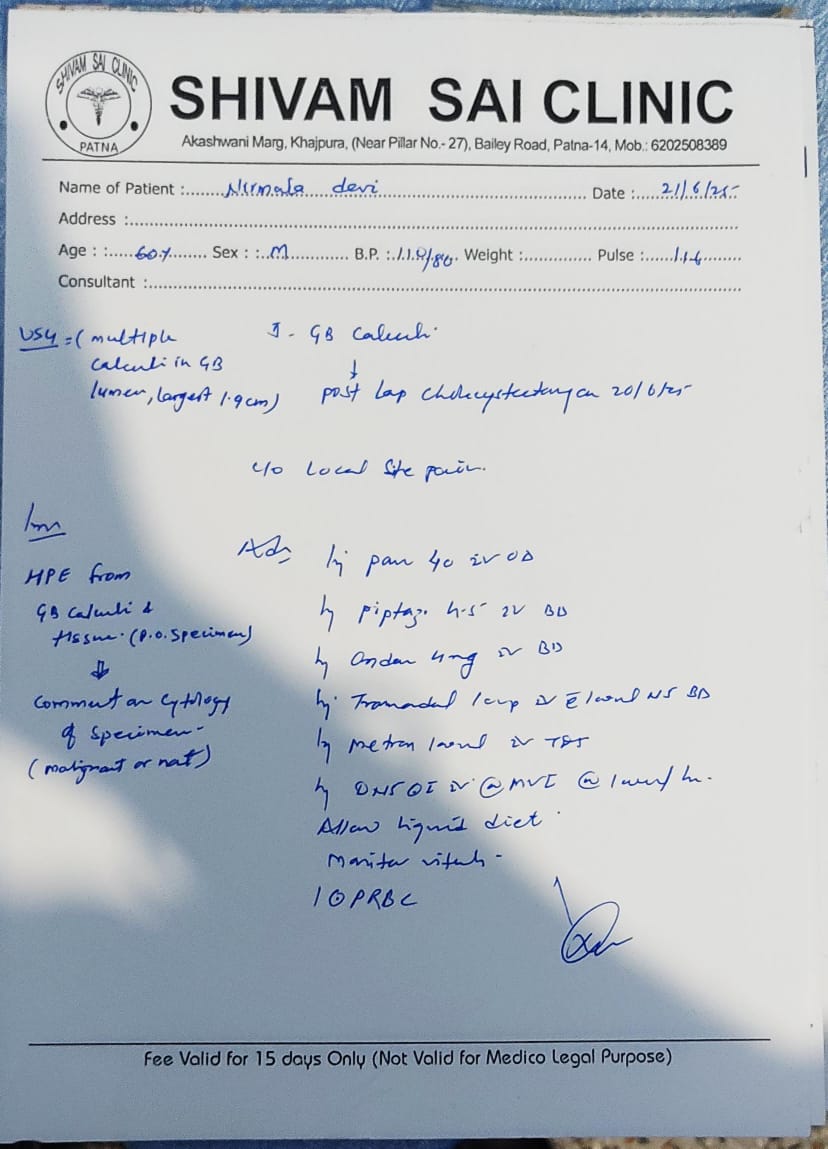 SHIVAM SAI CLINIC
PATNA
SHIVAM SAI CLINIC
Akashwani Marg, Khajpura, (Near Pillar No.- 27), Bailey Road, Patna-14, Mob.: 6202508389
Name of Patient : Nirmala devi Date : 21/6/25
Address :
Age : : 60y Sex : : M B.P. : 110/80 Weight : Pulse : 116
Consultant :
USG = (multiple
calculi in GB
lumen, largest 1.9cm)
GB Calculi
↓
post Lap Cholecystectomy on 20/6/25
c/o Local Site pain.
Inv
HPE from
GB Calculi &
tissue. (P.O. Specimen)
⇓
Comment on Cytology
of Specimen
(malignant or not)
Adv
Inj pan 40 iv OD
Inj piptaz 4.5 iv BD
Inj Ondan 4mg iv BD
Inj Tramadol 1amp iv c̄ 100ml NS BD
Inj metron 100ml iv TDS
Inj DNS iv MVI @ 100ml/hr.
Allow liquid diet
Monitor vitals -
PRBC
Fee Valid for 15 days Only (Not Valid for Medico Legal Purpose)